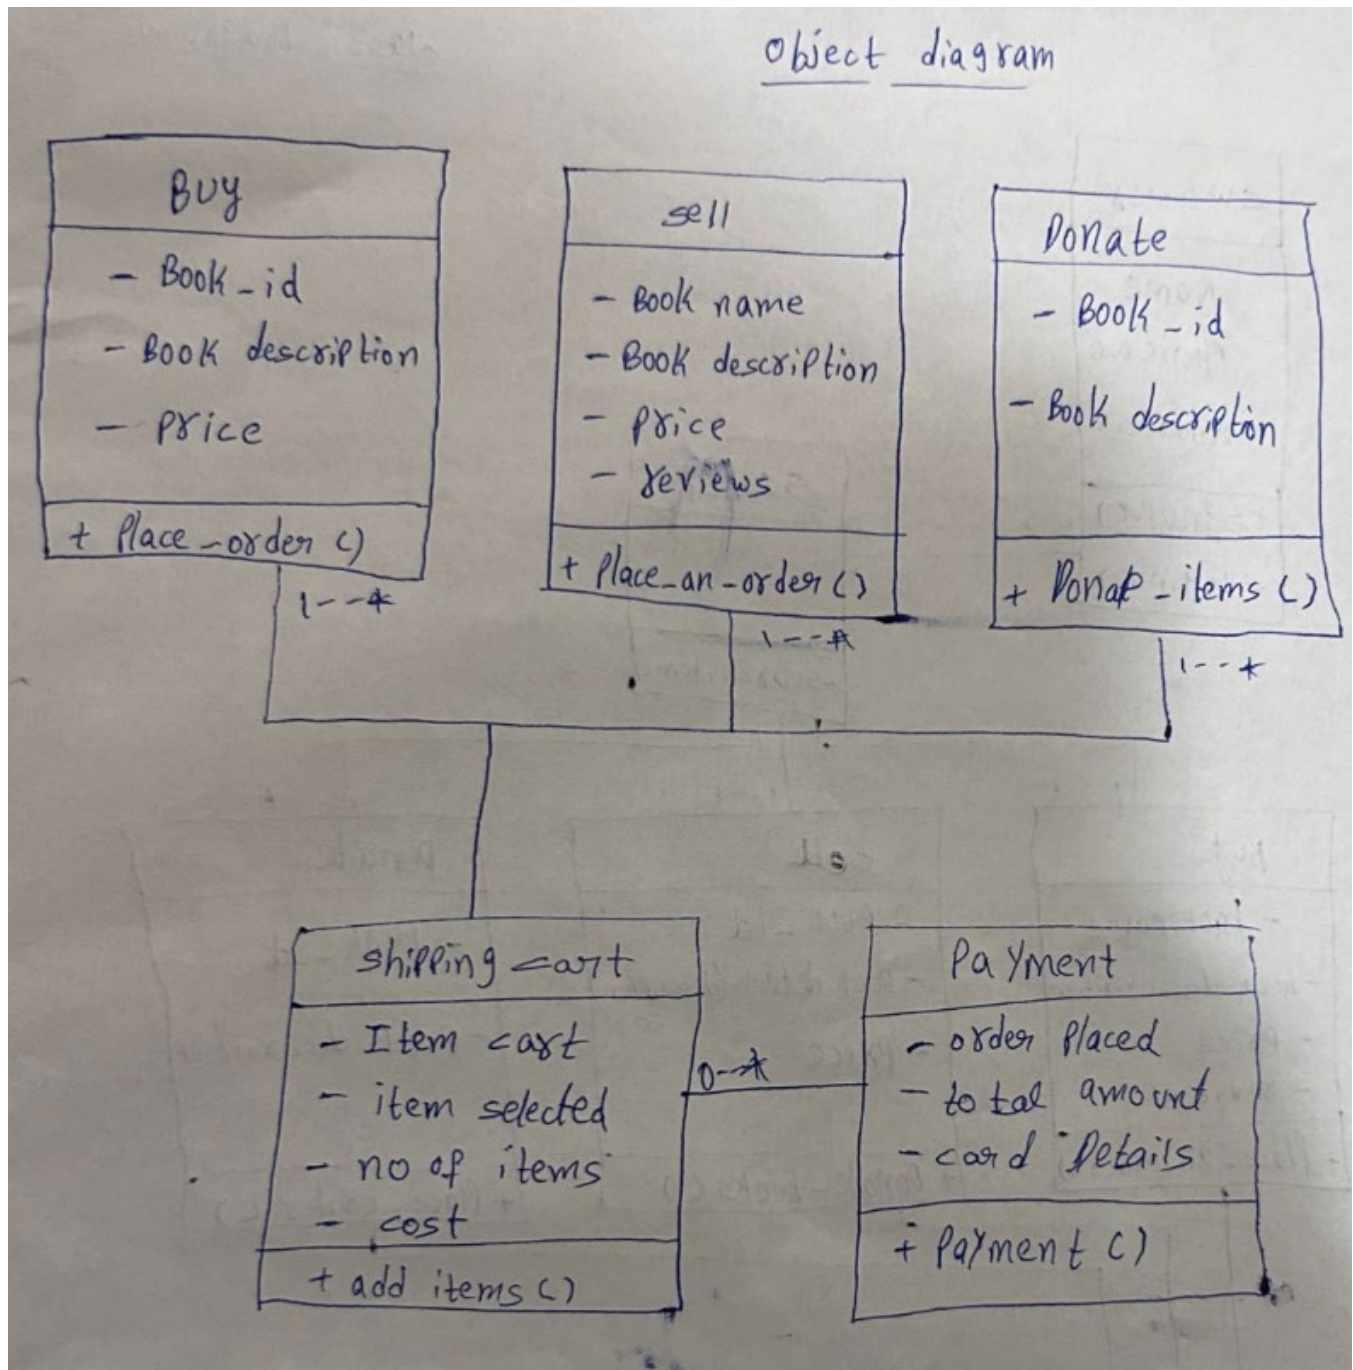 Object diagram
Buy
- Book_id
- Book description
- Price
+ Place_order ()
1--*
sell
- Book name
- Book description
- Price
- reviews
+ Place_an_order ()
1--*
Donate
- Book_id
- Book description
+ Donate_items ()
1--*
shipping cart
- Item cart
- item selected
- no of items
- cost
+ add items ()
0--*
Payment
- order Placed
- total amount
- card Details
+ Payment ()